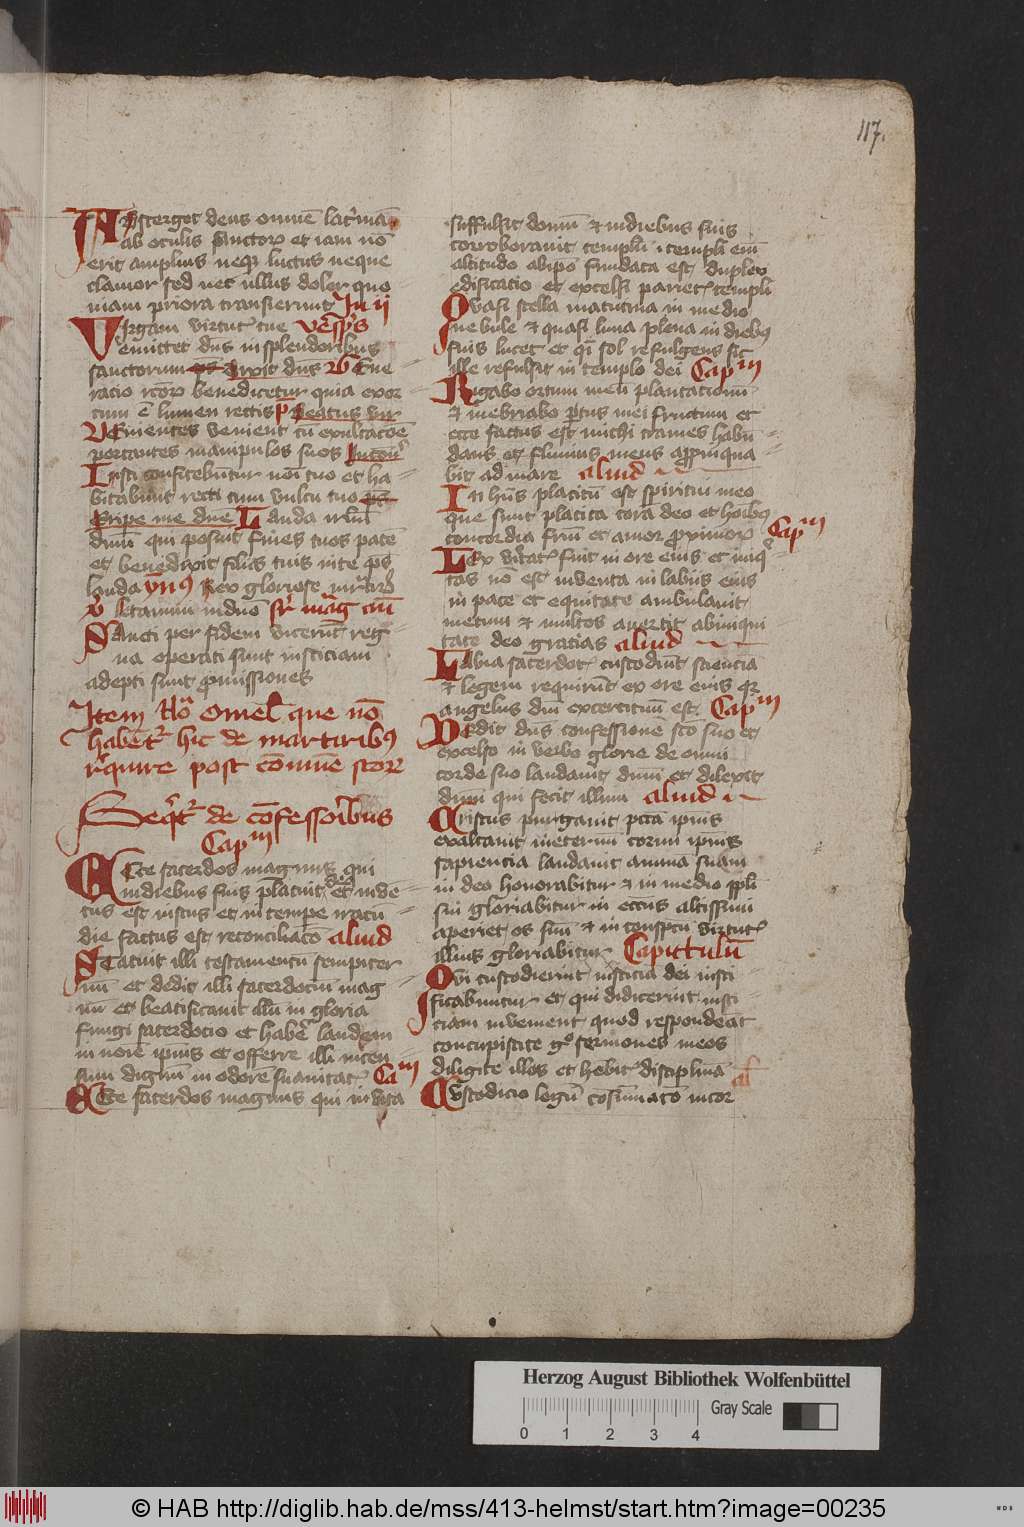 117.
Absterget deus omnē lac'mā
ab oculis sanctorꝝ et iam nō
erit amplius neqꝫ luctus neque
clamor sed nec ullus dolor quo
niam priora transierunt In ii
Virgam virtut' tue vesp's
emittet dns in splendoribus
sanctorum Dixit dns V Gene
racio rcōrꝫ benedicetur quia exor
tum ē lumen rectis p̄ Beatus vir
Venientes venient cū exultacōe
portantes manipulos suos
Iusti confitebuntur noī tuo et ha
bitabunt recti cum vultu tuo
Eripe me dne Lauda irlm
dnm qui posuit fines tuos pacē
et benedixit filiis tuis in te ps
lauda ymꝰ Rex gloriose
V Letamini in dno sr mag añ
Sancti per fidem vicerūt reg
na operati sunt iusticiam
adepti sunt promissiones
Item omel' que nō
habent' hic de martiribꝰ
require post cōmune scorꝝ
Seqt' de cōfessoribus
Capm
Ecce sacerdos magnus qui
in diebus suis placuit deo et inuē
tus est iustus et in tempe iracū
die factus est reconciliacō aliud
Statuit illi testamentū sempiter
nū et dedit illi sacerdociū mag
nū et beatificauit illū in gloria
fungi sacerdocio et habē laudem
in noīe ipius et offerre illi incen
sum dignū in odorē suauitat' Cam
Ecce sacerdos magnus qui in vita
suffulsit domū et in diebus suis
corroborauit templū templi em
altitudo ab ipō fundata est duplex
edificacio et excelsi pariet' templi
Quasi stella matutina in medio
nebule et quasi luna plena in diebꝰ
suis lucet et qi sol refulgens sic
ille refulsit in templo dei Capm
Rigabo ortum meū plantacionū
et inebriabo ptus mei fructum et
ecce factus est michi trames habū
dans et fluuius meus appinqua
bit ad mare aliud
In hiis placitū est spiritui meo
que sunt placita corā deo et hoībꝰ
concordia frm et amor proximorꝝ Capm
Lex v'itat' fuit in ore eius et iniq'
tas nō est inuenta in labiis eius
in pace et equitate ambulauit
mecum et multos auertit ab iniqui
tate deo gracias aliud
Labia sacerdot' custodiūt scienciā
et legem requirūt ex ore eius qꝛ
angelus dni excercituū est Capm
Dedit dns confessionē scō suo et
excelso in verbo glorie de omni
corde suo laudauit dnm et dilexit
dnm qui fecit illum aliud
Cristus purgauit pccā ipius
exaltauit in eternū cornu ipius
sapiencia laudauit animā suam
in deo honorabitur et in medio ppli
sui gloriabitur in eccus altissimi
aperiet os suū et in conspcū virtut'
illius gloriabitur Capittulū
Qui custodierint iusticiā dei iusti
ficabuntur et qui didicerint iusti
ciam inuenient quod respondeāt
concupiscite gº sermones meos
diligite illos et hebit' disciplinā al'
Custodicio legū cosūmacō incor
Herzog August Bibliothek Wolfenbüttel
Gray Scale
0 1 2 3 4
© HAB http://diglib.hab.de/mss/413-helmst/start.htm?image=00235
WDB